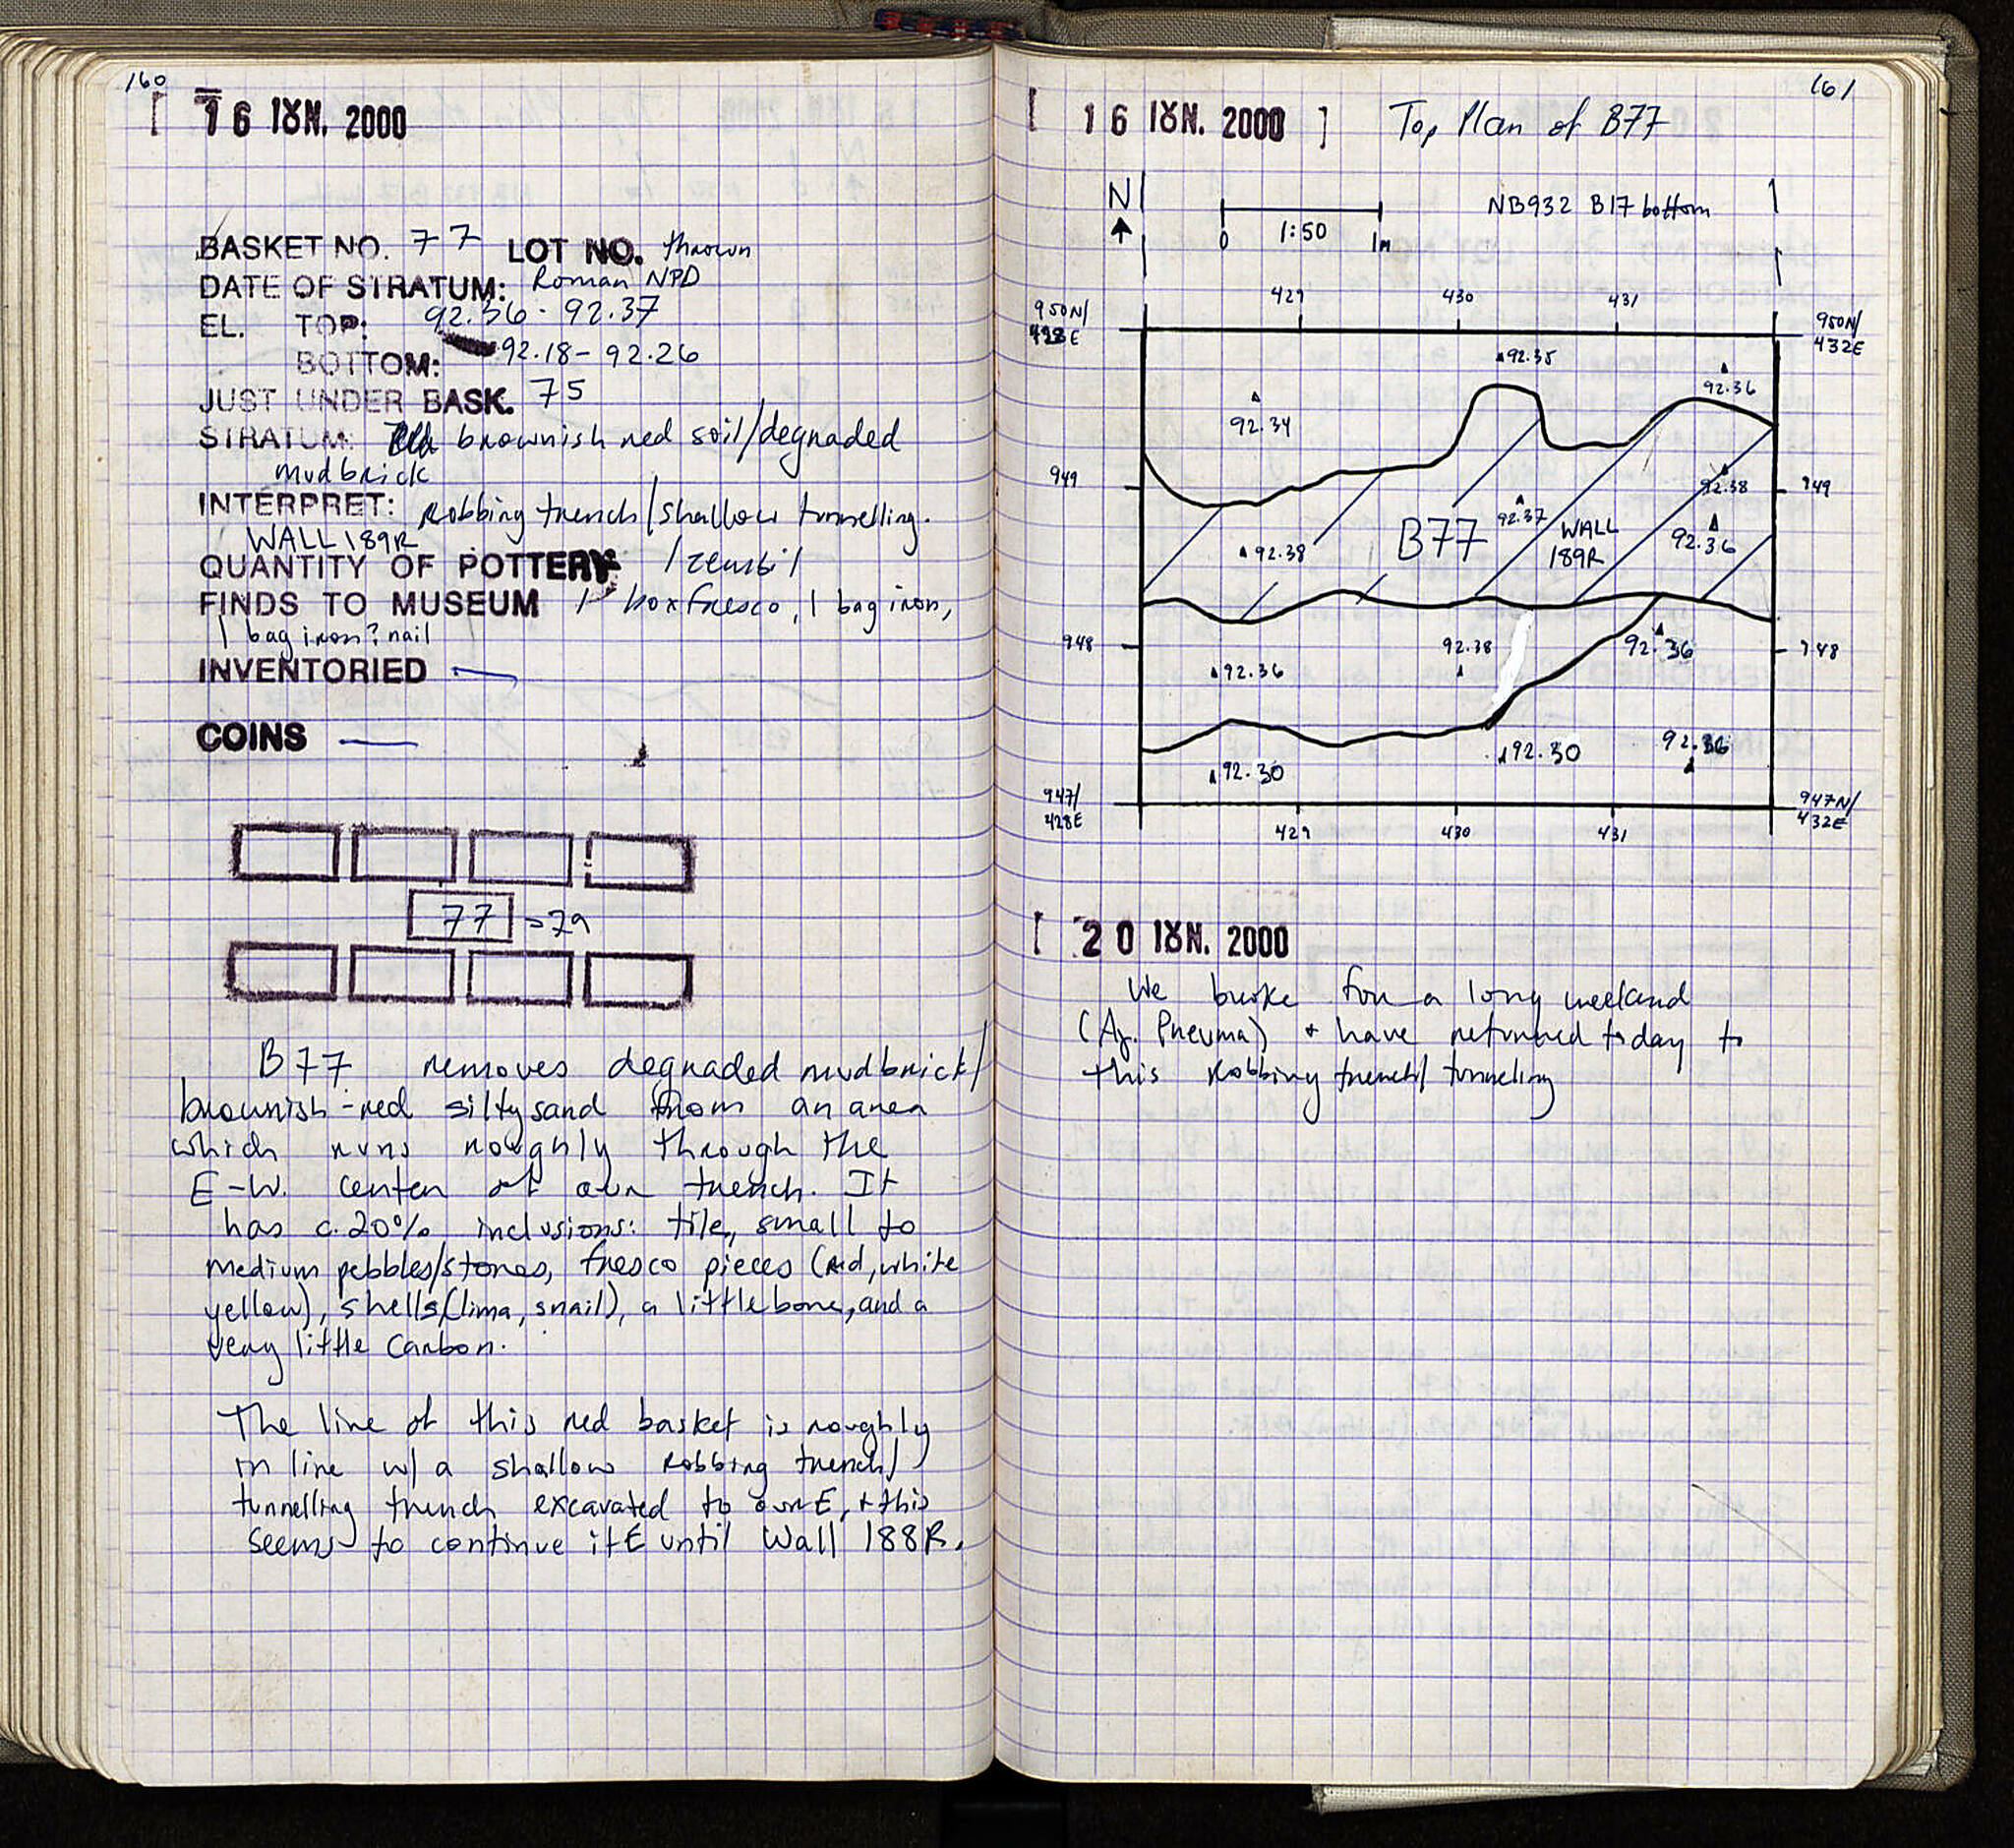 160
[ 16 ΙȣΝ. 2000
BASKET NO. 77 LOT NO. thrown
DATE OF STRATUM: Roman NPD
EL. TOP: 92.36 - 92.37
BOTTOM: 92.18 - 92.26
JUST UNDER BASK. 75
STRATUM: brownish red soil/degraded
mudbrick
INTERPRET: Robbing trench/shallow tunnelling.
WALL 189R
QUANTITY OF POTTERY 1 zembil
FINDS TO MUSEUM 1 box fresco, 1 bag iron,
1 bag iron? nail
INVENTORIED —
COINS —
77 = 79
B77 removes degraded mudbrick/
brownish-red silty sand from an area
which runs roughly through the
E-W. center of our trench. It
has c. 20% inclusions: tile, small to
medium pebbles/stones, fresco pieces (red, white
yellow), shells (lima, snail), a little bone, and a
very little carbon.
The line of this red basket is roughly
in line w/ a shallow robbing trench/
tunnelling trench excavated to our E, + this
seems to continue it E until Wall 188R.
161
[ 16 ΙȣΝ. 2000 ] Top Plan of B77
N
NB932 B17 bottom
0 1:50 1m
429 430 431
950N/
428E
950N/
432E
92.35
92.36
92.34
949
92.38
949
92.37
B77
WALL
189R
92.36
92.38
948
92.38
92.36
948
92.36
92.30
92.36
92.30
947/
428E
947N/
432E
429 430 431
[ 20 ΙȣΝ. 2000
We broke for a long weekend
(Ag. Pneuma) + have returned today to
this robbing trench/ tunneling